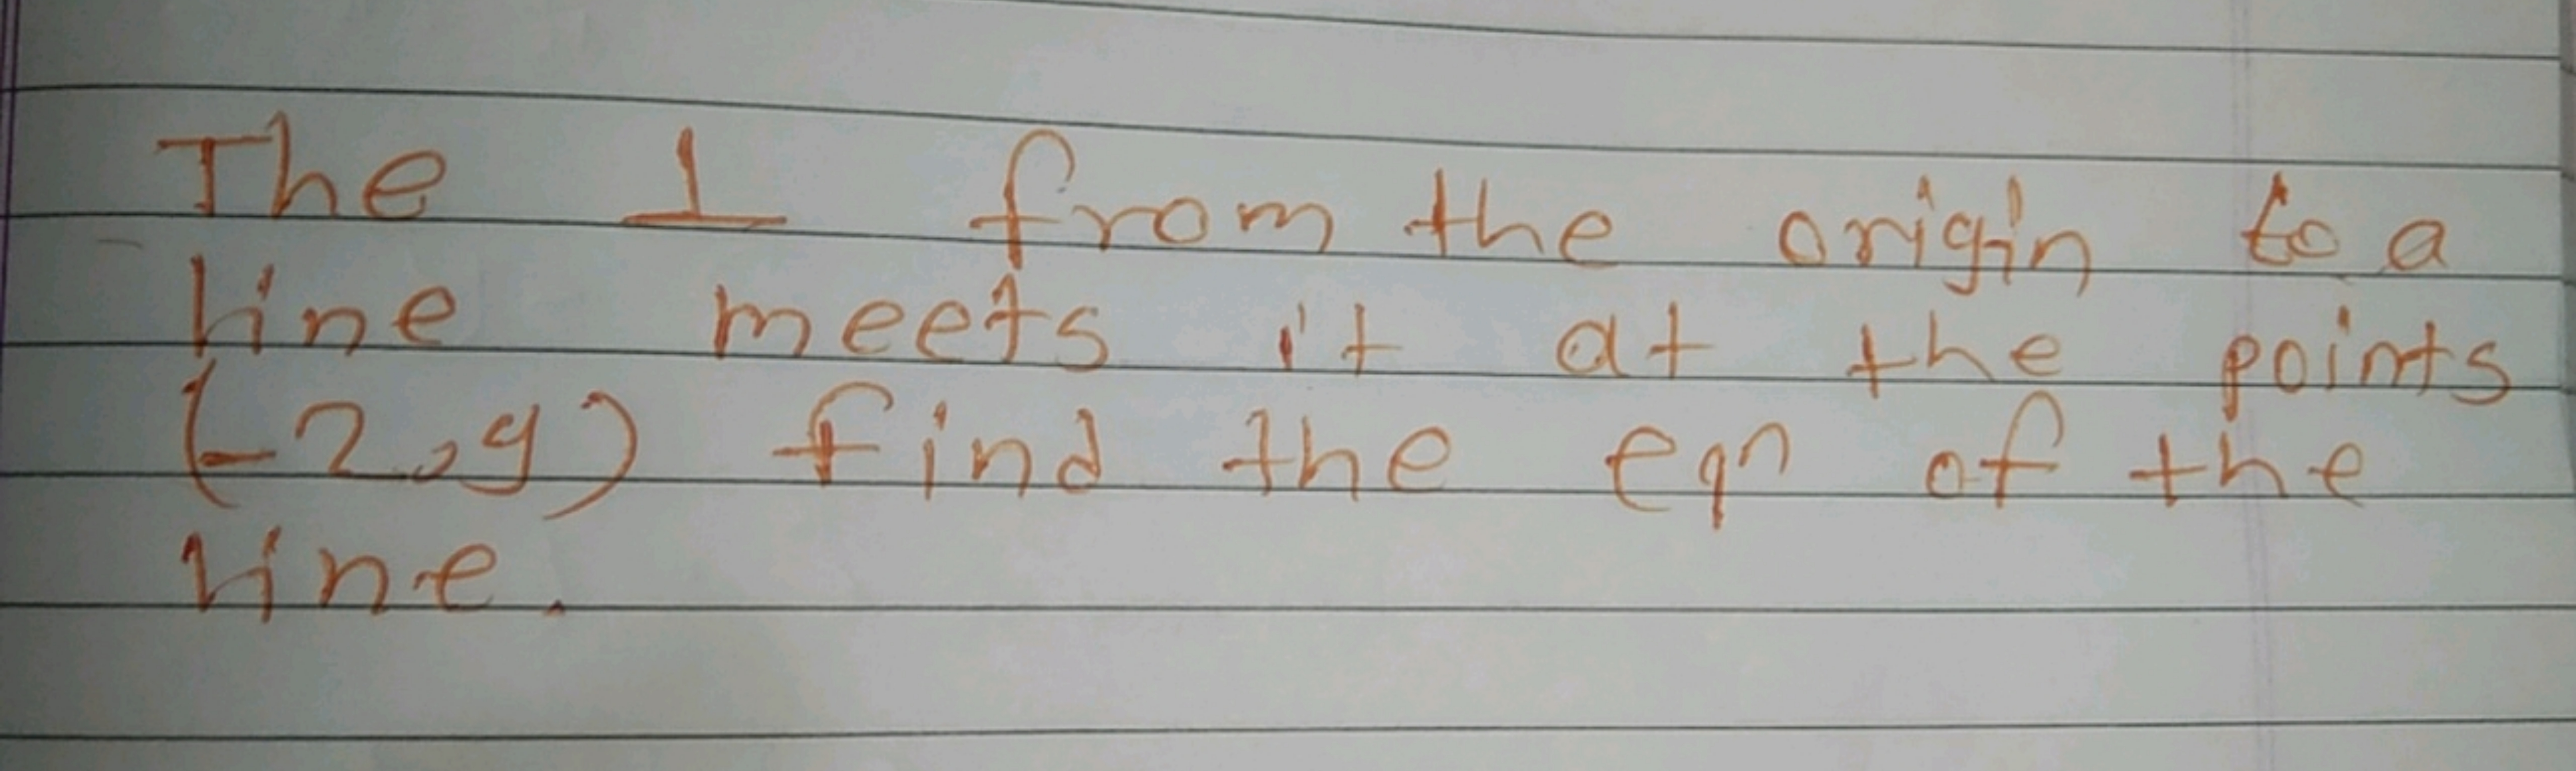 The ⊥ from the origin to a
line meets it at the points
(-2,9) find the eqn of the
line.